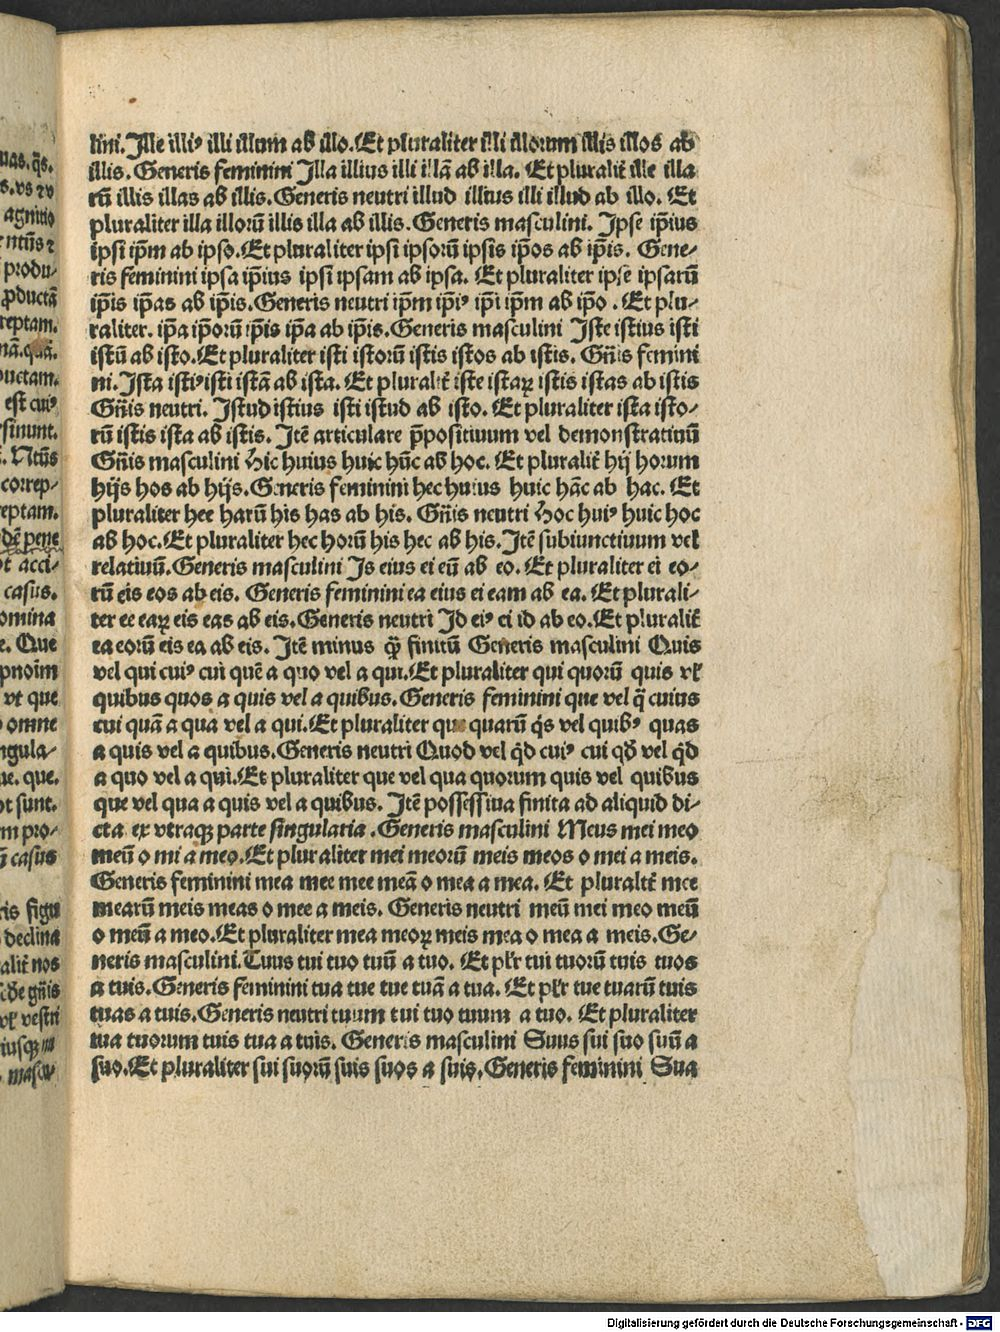 lini. Ille illiꝰ illi illum ab illo. Et pluraliter illi illorum illis illos ab
illis. Generis feminini Illa illius illi illā ab illa. Et pluralit̄ ille illa
rū illis illas ab illis. Generis neutri illud illius illi illud ab illo. Et
pluraliter illa illorū illis illa ab illis. Generis masculini. Ipse ip̄ius
ipsi ip̄m ab ipso. Et pluraliter ipsi ipsorū ipsis ip̄os ab ip̄is. Gene⸗
ris feminini ipsa ip̄ius ipsi ipsam ab ipsa. Et pluraliter ipse ipsarū
ip̄is ip̄as ab ip̄is. Generis neutri ip̄m ip̄iꝰ ip̄i ip̄m ab ip̄o. Et plu⸗
raliter. ip̄a ip̄orū ip̄is ip̄a ab ip̄is. Generis masculini Iste istius isti
istū ab isto. Et pluraliter isti istorū istis istos ab istis. Gn̄is femini
ni. Ista istiꝰ isti istā ab ista. Et pluralit̄ iste istaꝝ istis istas ab istis
Gn̄is neutri. Istud istius isti istud ab isto. Et pluraliter ista isto⸗
rū istis ista ab istis. Itē articulare p̄positiuum vel demonstratiuū
Gn̄is masculini Hic huius huic hūc ab hoc. Et pluralit̄ hij horum
hijs hos ab hijs. Generis feminini hec huius huic hāc ab hac. Et
pluraliter hee harū his has ab his. Gn̄is neutri Hoc huiꝰ huic hoc
ab hoc. Et pluraliter hec horū his hec ab his. Itē subiunctiuum vel
relatiuū. Generis masculini Is eius ei eū ab eo. Et pluraliter ei eo⸗
rū eis eos ab eis. Generis feminini ea eius ei eam ab ea. Et plurali⸗
ter ee eaꝝ eis eas ab eis. Generis neutri Id eiꝰ ei id ab eo. Et pluralit̄
ea eorū eis ea ab eis. Itē minus qꝫ finitū Generis masculini Quis
vel qui cuiꝰ cui quē a quo vel a qui. Et pluraliter qui quorū quis vl̄
quibus quos a quis vel a quibus. Generis feminini que vel q̄ cuius
cui quā a qua vel a qui. Et pluraliter que quarū q̄s vel quibꝰ quas
a quis vel a quibus. Generis neutri Quod vel q̄d cuiꝰ cui qd̄ vel q̄d
a quo vel a qui. Et pluraliter que vel qua quorum quis vel quibus
que vel qua a quis vel a quibus. Itē possessiua finita ad aliquid di⸗
cta ex vtraqꝫ parte singularia. Generis masculini Meus mei meo
meū o mi a meo. Et pluraliter mei meorū meis meos o mei a meis.
Generis feminini mea mee mee meā o mea a mea. Et pluralit̄ mee
mearū meis meas o mee a meis. Generis neutri meū mei meo meū
o meū a meo. Et pluraliter mea meoꝝ meis mea o mea a meis. Ge⸗
neris masculini. Tuus tui tuo tuū a tuo. Et pl̄r tui tuorū tuis tuos
a tuis. Generis feminini tua tue tue tuā a tua. Et pl̄r tue tuarū tuis
tuas a tuis. Generis neutri tuum tui tuo tuum a tuo. Et pluraliter
tua tuorum tuis tua a tuis. Generis masculini Suus sui suo suū a
suo. Et pluraliter sui suorū suis suos a suis. Generis feminini Sua
Digitalisierung gefördert durch die Deutsche Forschungsgemeinschaft - DFG